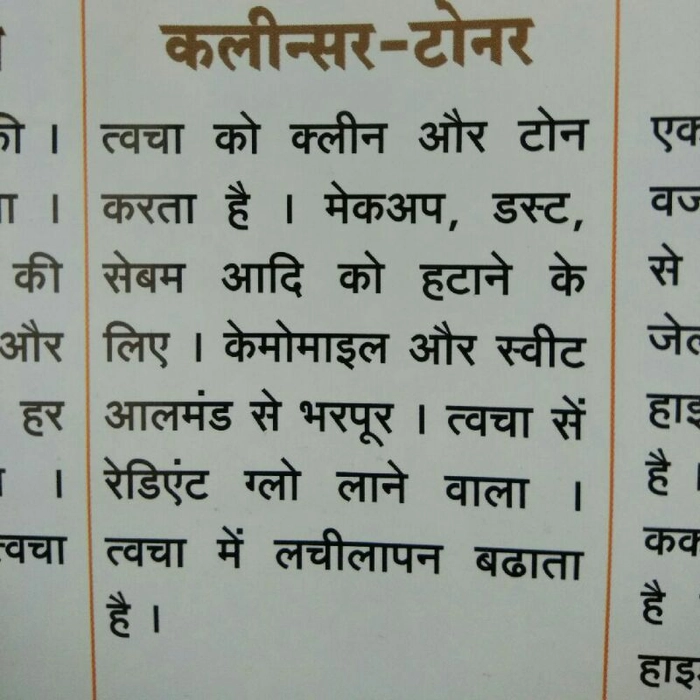 कलीन्सर-टोनर
त्वचा को क्लीन और टोन
करता है । मेकअप, डस्ट,
सेबम आदि को हटाने के
लिए । केमोमाइल और स्वीट
आलमंड से भरपूर । त्वचा सें
रेडिएंट ग्लो लाने वाला ।
त्वचा में लचीलापन बढाता
है ।
की
और
हर
से
है ।
है